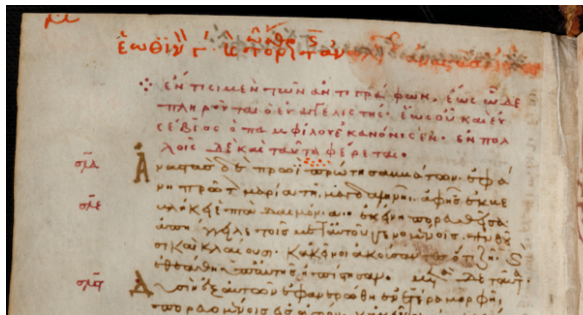 ἑωθινὸν
ἔν τισι μὲν τῶν ἀντιγράφων, ἕως ὧδε
πληροῦται ὁ εὐαγγελιστής, ἕως οὗ καὶ εὐ
σέβιος ὁ παμφίλου ἐκανόνισεν. ἐν πολ
λοῖς δὲ καὶ ταῦτα φέρεται.
Ἀναστὰς δὲ πρωῒ πρώτη σαββάτων. ἐφά
νη πρῶτον μαρία τῆ μαγδαληνῆ. ἀφ' ἧς ἐκβε
βλήκει ἑπτὰ δαιμόνια. ἐκείνη πορευθεῖσα
ἀπήγγειλε τοῖς μετ' αὐτοῦ γενομένοις. πενθοῦ
σι καὶ κλαίουσι. κἀκεῖνοι ἀκούσαντες ὅτι ζῆ καὶ
ἐθεάθη ὑπ' αὐτῆς ἠπίστησαν. μετὰ δὲ ταῦτα
Δυσὶν ἐξ αὐτῶν ἐφανερώθη ἐν ἑτέρα μορφῆ.
πορευομένοις εἰς ἀγρόν.